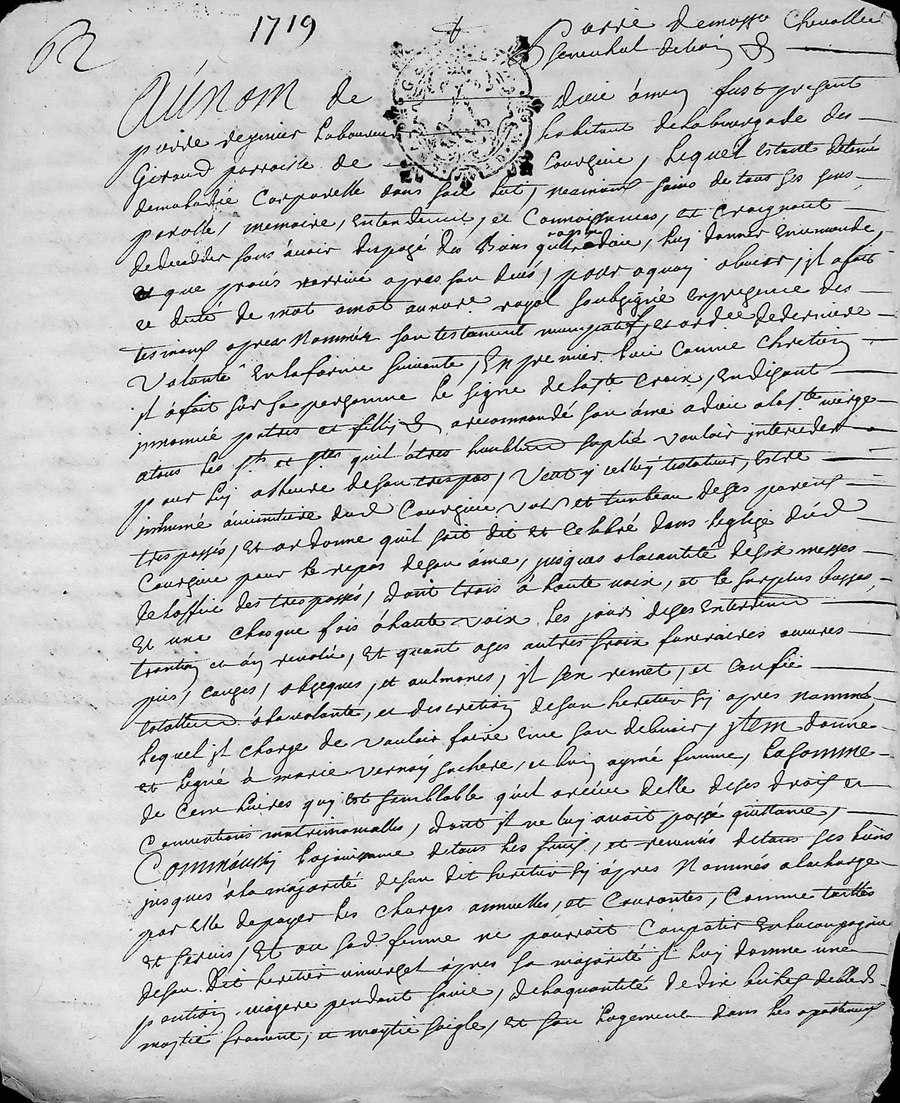 1719
pierre Demasso Chevallier
senechal de lion &
Au nom de Dieu amen fust present
pierre regnier Laboureur habitant de la bourgade des
Giraud parroisse de Courzieu, Lequel estant detenu
de maladie Corporelle dans son lit, neanmoins sains de tous ses sens,
parolle, memoire, Entendement, et Connoissances, et Craignant
de decedder sans avoir dispozé des Biens qu'il a plu a dieu, luy donner En ce monde,
et que procés n'arrive apres son decés, pour a quoy obvier, jl a fait
et dicté de mot a mot au no.re royal soubsigné En presence des
tesmoins apres Nommés son testament nuncupatif, et ord.ce de derniere
Volonté En la forme suivante, En premier lieu comme Chretien
jl a fait sur sa personne le signe de la s.te Croix, En disant
jn nomine patris et fillij & a recommandé son âme a dieu a la s.te vierge
a tous les s.ts et s.tes qu'il a tres humblem.t suplié vouloir interceder
pour luy a l'heure de son trespas, Veut y celluy testateur, Estre
inhumé au cimitiere dud. Courzieu vas et tumbeau de ses parens
trespassés, et ordonne qu'il soit dit et Celebré dans l'eglize dud.
Courzieu pour le repos de son âme, jusques a la cantité de six messes
de l'office des trespassés, dont trois a haute voix, et le surplus basses,
Et une chasque fois a haute voix les jours de ses Enterrem.t
trantain et an revolu, Et quant a ses autres fraix funeraires œuvres
pies, obzeques, et aulmones, jl s'en remet, et confie
totallem.t a la volonté, et discretion de son heritier cy apres nommé,
Lequel jl charge de vouloir faire En son debvoir, jtem donne
et legue à marie Vernay sa chere, et bien aymé femme, La somme
de Cent livres qui est semblable qu'il a receue d'elle de ses droits et
Conventions matrimonialles, dont jl ne luy avoit passé quittance,
Comme aussy la jouissance de tous les fruits, et revenus de tous ses biens
jusques a la majorité de son dit heritier cy apres Nommés a la charge
par Elle de payer les charges annuelles, et Courantes, Comme tailles
et servis, Et ou sad. femme ne pourroit Compatir En la compagnie
de son dit heritier universel apres sa majorité jl luy donne une
pention viagere pendant sa vie, de la quantité de dix bichets de bled
moytié froment, et moytié soigle, et son Logement dans les apartemens